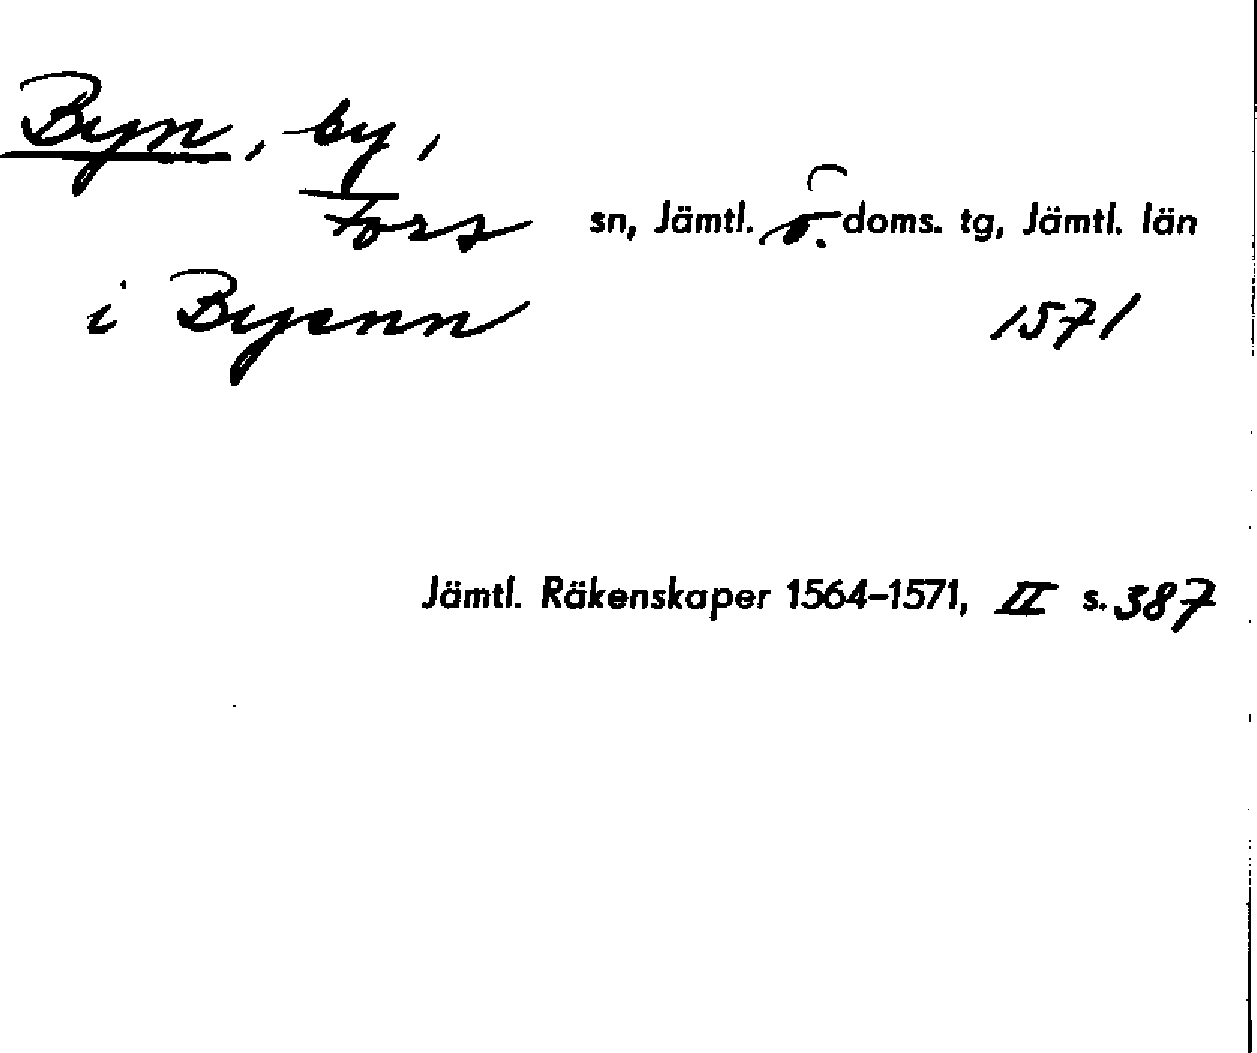 Byn, by,
Fors sn, Jämtl. ö. doms. tg, Jämtl. län
i Byenn 1571
Jämtl. Räkenskaper 1564–1571, II s. 387